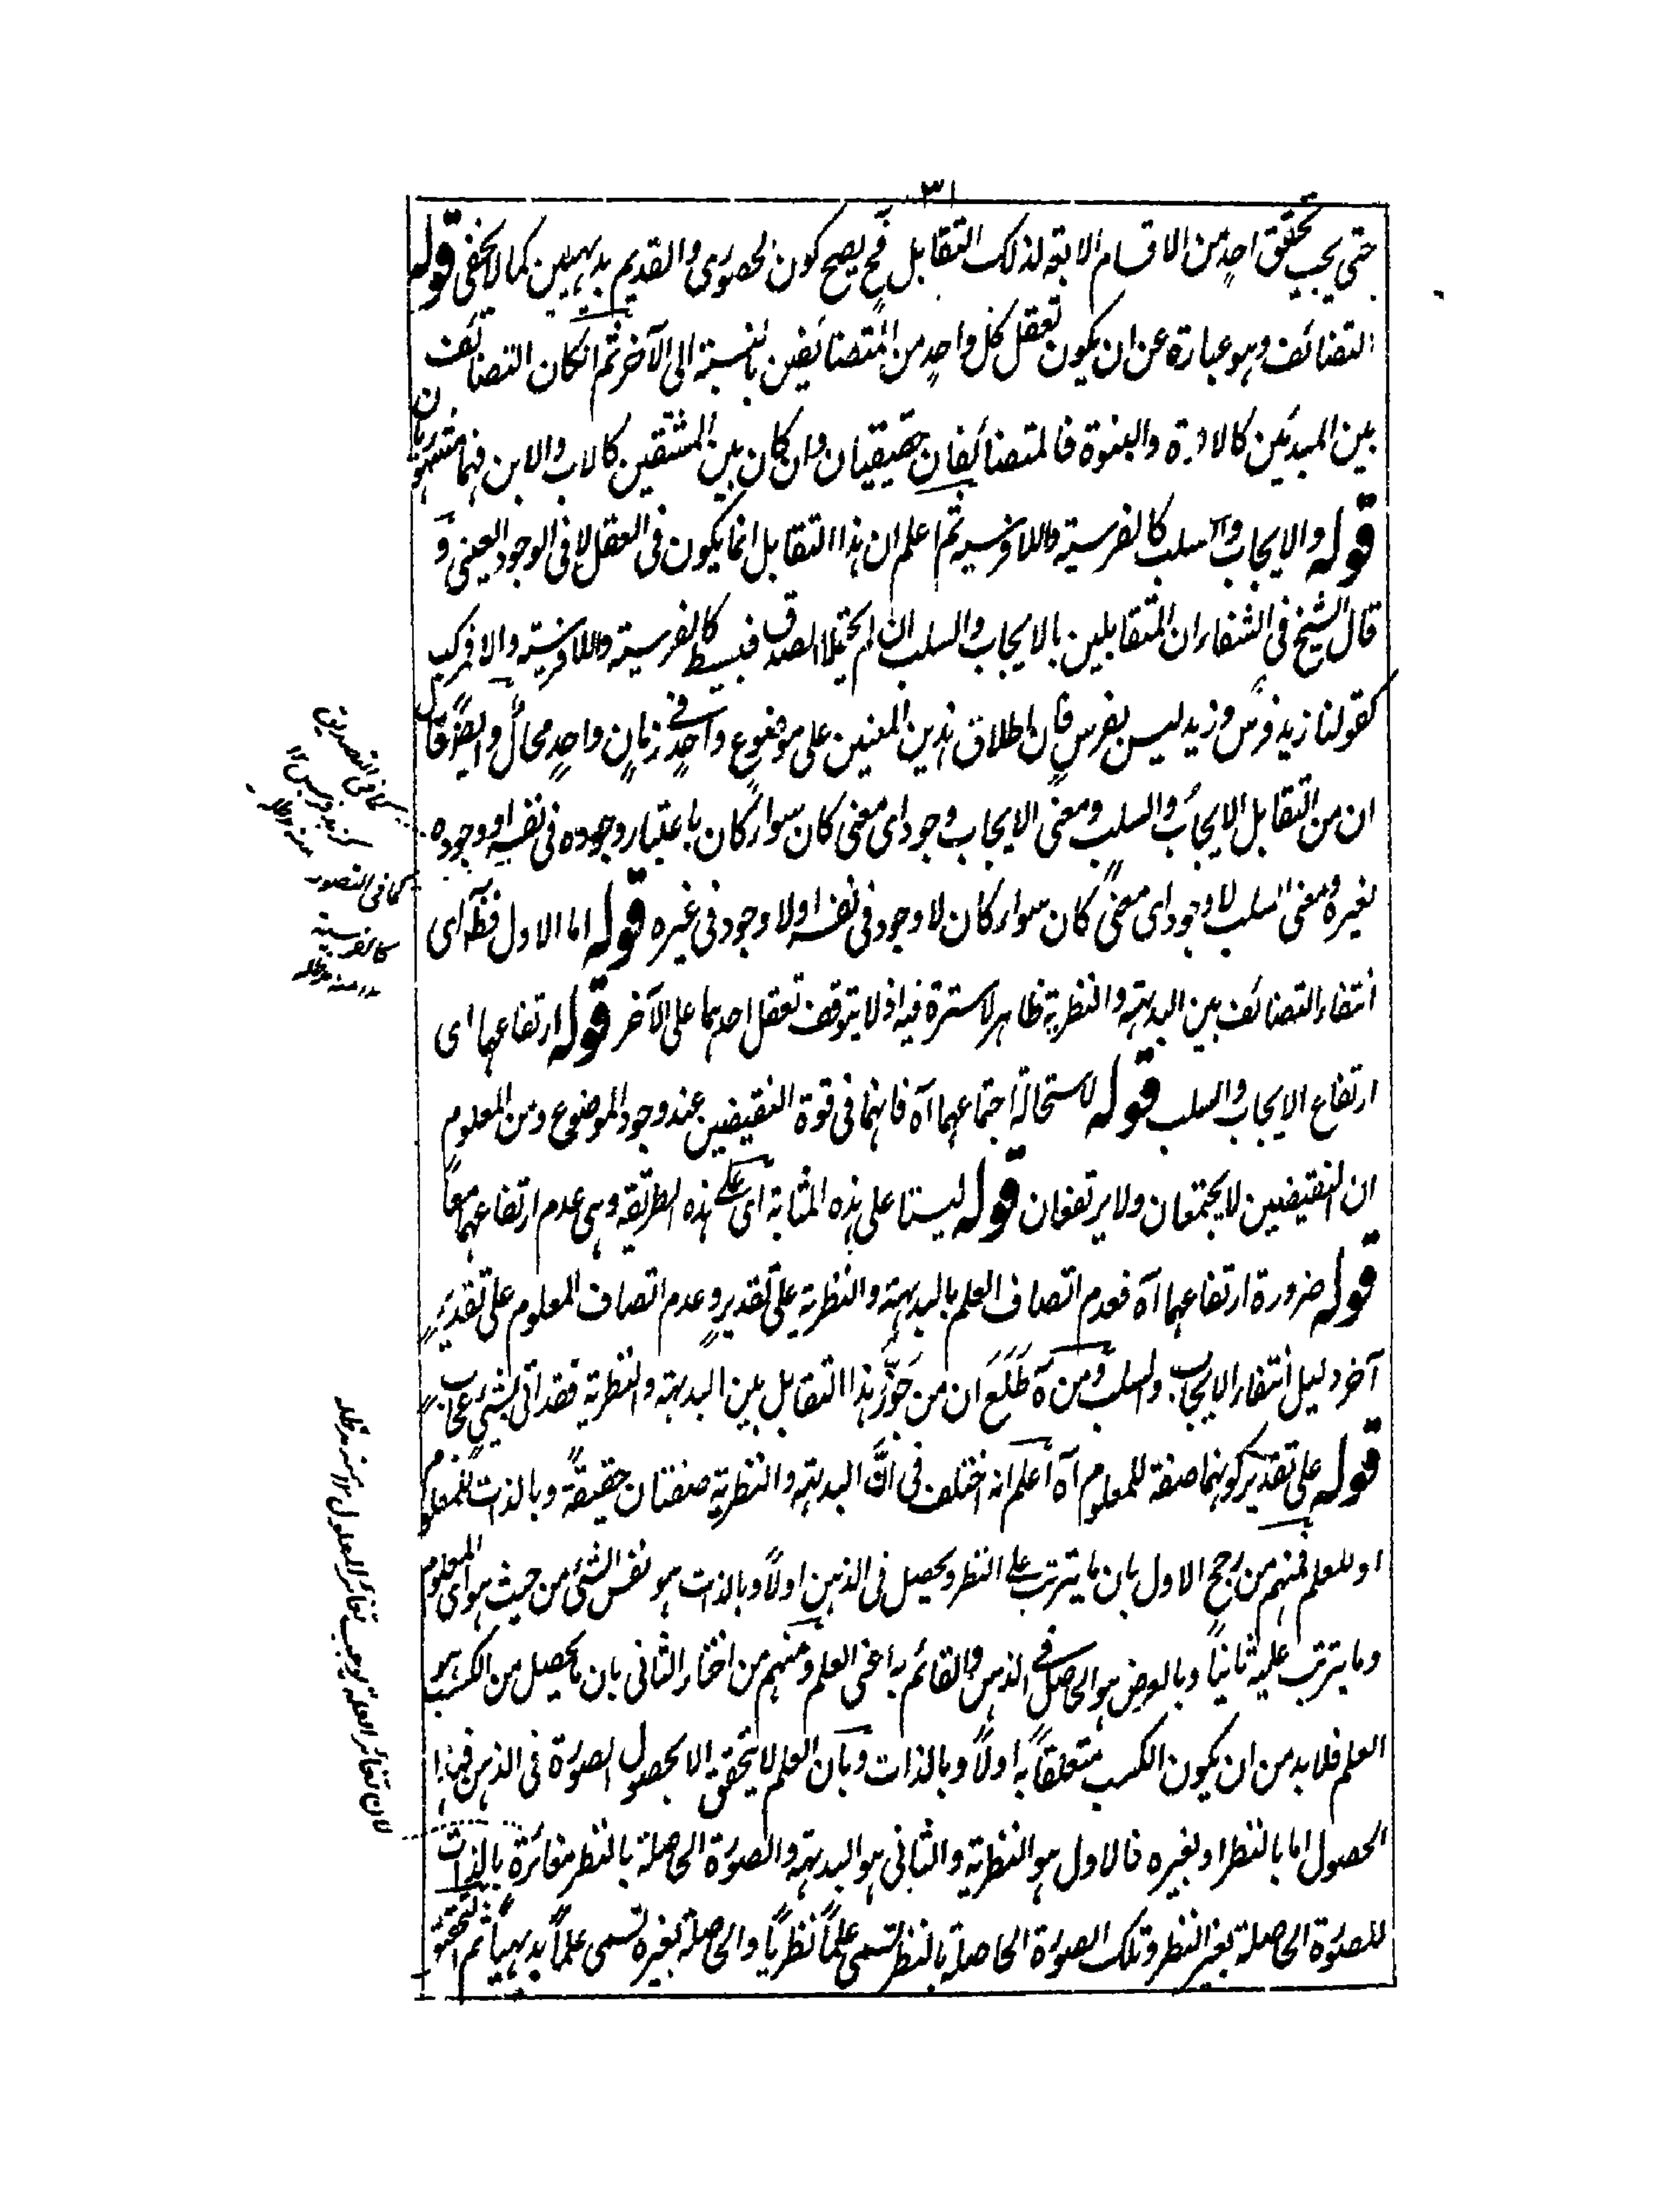 ٣١
حتى يجب تحقق احدٍ من الاقسام الاربعة لذلك التقابل فح يصح كون الحضورى والقديم بديهيين كما لا يخفى قوله
التضائف وهو عبارة عن ان يكون تعقل كل واحدٍ من المتضائفين بالنسبة الى الآخر ثم ان كان التضائف
بين المبدئين كالابوة والبنوة فالمتضائفان حقيقيان وان كان بين المشتقين كالاب والابن فهما مشهوريان
قوله والايجاب والسلب كالفرسية واللافرسية ثم اعلم ان هذا التقابل انما يكون فى العقل لا فى الوجود العينى و
قال الشيخ فى الشفاء ان المتقابلين بالايجاب والسلب ان لم يحتملا الصدق فبسيط كالفرسية واللافرسية والا فمركب
كقولنا زيد فرس وزيد ليس بفرس فان اطلاق هذين المعنيين على موضوع واحدٍ فى زمانٍ واحدٍ محالٌ وايضًا قال
ان من التقابل الايجاب والسلب ومعنى الايجاب وجود اى معنى كان سواء كان باعتبار وجوده فى نفسه او وجوده
لغيره ومعنى السلب لا وجود اى معنى كان سواء كان لا وجود فى نفسه او لا وجود فى غيره قوله اما الاول فظ آه اى
انتفاء التضائف بين البديهة والنظرية ظاهر لا سترة فيه اذ لا يتوقف تعقل احدهما على الآخر قوله ارتفاعهما اى
ارتفاع الايجاب والسلب قوله لاستحالة اجتماعهما آه فانهما فى قوة النقيضين عند وجود الموضوع ومن المعلوم
ان النقيضين لا يجتمعان ولا يرتفعان قوله ليستا على هذه المثابة اى على هذه الطريقة وهى عدم ارتفاعهما معًا
قوله ضرورة ارتفاعهما آه فعدم اتصاف العلم بالبديهة والنظرية على تقديرٍ وعدم اتصاف المعلوم على تقديرٍ
آخر دليل انتفاء الايجاب والسلب ومن ثمه طَلَعَ ان من جَوَّز هذا التقابل بين البديهة والنظرية فقد اتى بشئ عجاب
قوله على تقدير كونهما صفة للمعلوم آه اعلم انه اختلف فى ان البديهة والنظرية صفتان حقيقةً وبالذات للمعلوم
او للعلم فمنهم من رجح الاول بان ما يترتب على النظر ويحصل فى الذهن اولاً وبالذات هو نفس الشئ من حيث هو اى المعلوم
وما يترتب عليه ثانيًا وبالعرض هو الحاصل فى الذهن والقائم به اعنى العلم ومنهم من اختار الثانى بان ما يحصل من الكسب هو
العلم فلا بد من ان يكون الكسب متعلقًا به اولاً وبالذات وبان العلم لا يتحقق الا بحصول الصورة فى الذهن فهذا
الحصول اما بالنظر او بغيره فالاول هو النظرية والثانى هو البديهة والصورة الحاصلة بالنظر مغائرة بالذات
للصورة الحاصلة بغير النظر وتلك الصورة الحاصلة بالنظر تسمى علمًا نظريًا والحاصلة بغيره تسمى علمًا بديهيًا ثم التحقيق
كما فى التصديق
منه مدظله
كما فى التصور
كالفرسية
منه مدظله
لان تغائر العلة يوجب تغائر المعلول منه مدظله